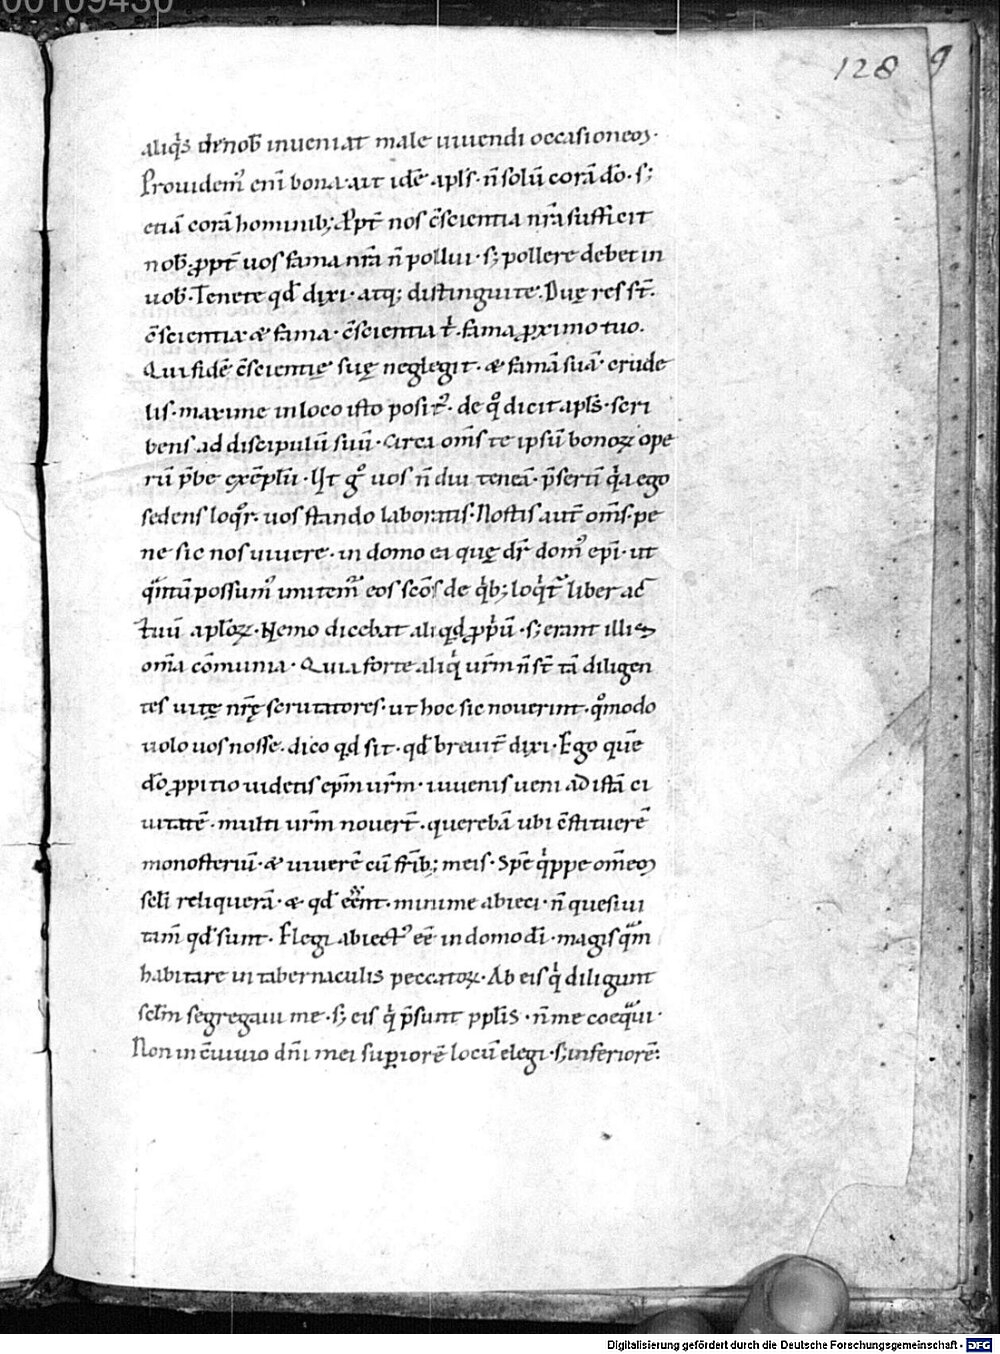 00109430
128 9
aliq̍s de nob̄ inueniat male uiuendi occasionem·
Prouidem᷒ eni᷒ bona·ait idē apl̄s·n̄ solū corā dō·s;
etiā corā hominib; Ꝓpt̄ nos c̄scientia nr̄a sufficit
nob̄·ꝓpt̄ uos fama nr̄a n̄ pollui·s; pollere debet in
uob̄·Tenete qd̄ dixi·atq; distinguite·Duę res st̄·
c̄scientia· & fama· c̄scientia t̍·fama ꝓximo tuo.
Qui fidē c̄scientię suę neglegit· & famā suā· crude
lis·maxime in loco isto posit᷒· de q̊ dicit apl̄s·scri
bens ad discipulū suū·Circa om̄s te ipsū bonoꝝ ope
rū p̄be exēplū·Ut g̊ uos n̄ diu teneā·p̄serti q̍a ego
sedens loq̊r·uos stando laboratis·Nostis aut̄ om̄s·pe
ne sic nos uiuere·in domo ei quę dr̄ dom᷒ ep̄i·ut
q̄ntū possum᷒ imitem᷒ eos sc̄os de q̍b; loq̍t᷒ liber ac
tuū apl̄oꝝ·Nemo dicebat aliqd̄ ꝓpū·s; erant illis
om̄a cōmunia·Quia forte aliq̍ ur̄m n̄ st̄ tā diligen
tes uitę nr̄ę scrutatores·ut hoc sic nouerint·q̊modo
uolo uos nosse·dico qd̄ sit·qd̄ breuit̄ dixi·Ego quē
dō ꝓpitio uidetis ep̄m ur̄m·iuuenis ueni ad istā ci
uitatē·multi ur̄m nouer̄t·querebā ubi c̄stituerē
monosteriū·& uiuerē cū fr̄ib; meis·Spē q̍ppe omēm
sc̄li reliquerā·& qd̄ eēnt·minime abieci·n̄ quesiui
tam̄ qd̄ sunt·Elegi abiect᷒ eē in domo dī·magis qm̄
habitare in tabernaculis peccatoꝝ·Ab eis q̍ diligunt
sc̄lm segregaui me·s; eis q̍ p̄sunt ppl̄is·n̄ me coequi·
Non in c̄uiuio dn̄i mei supiorē locū elegi·s; inferiorē:
Digitalisierung gefördert durch die Deutsche Forschungsgemeinschaft - DFG